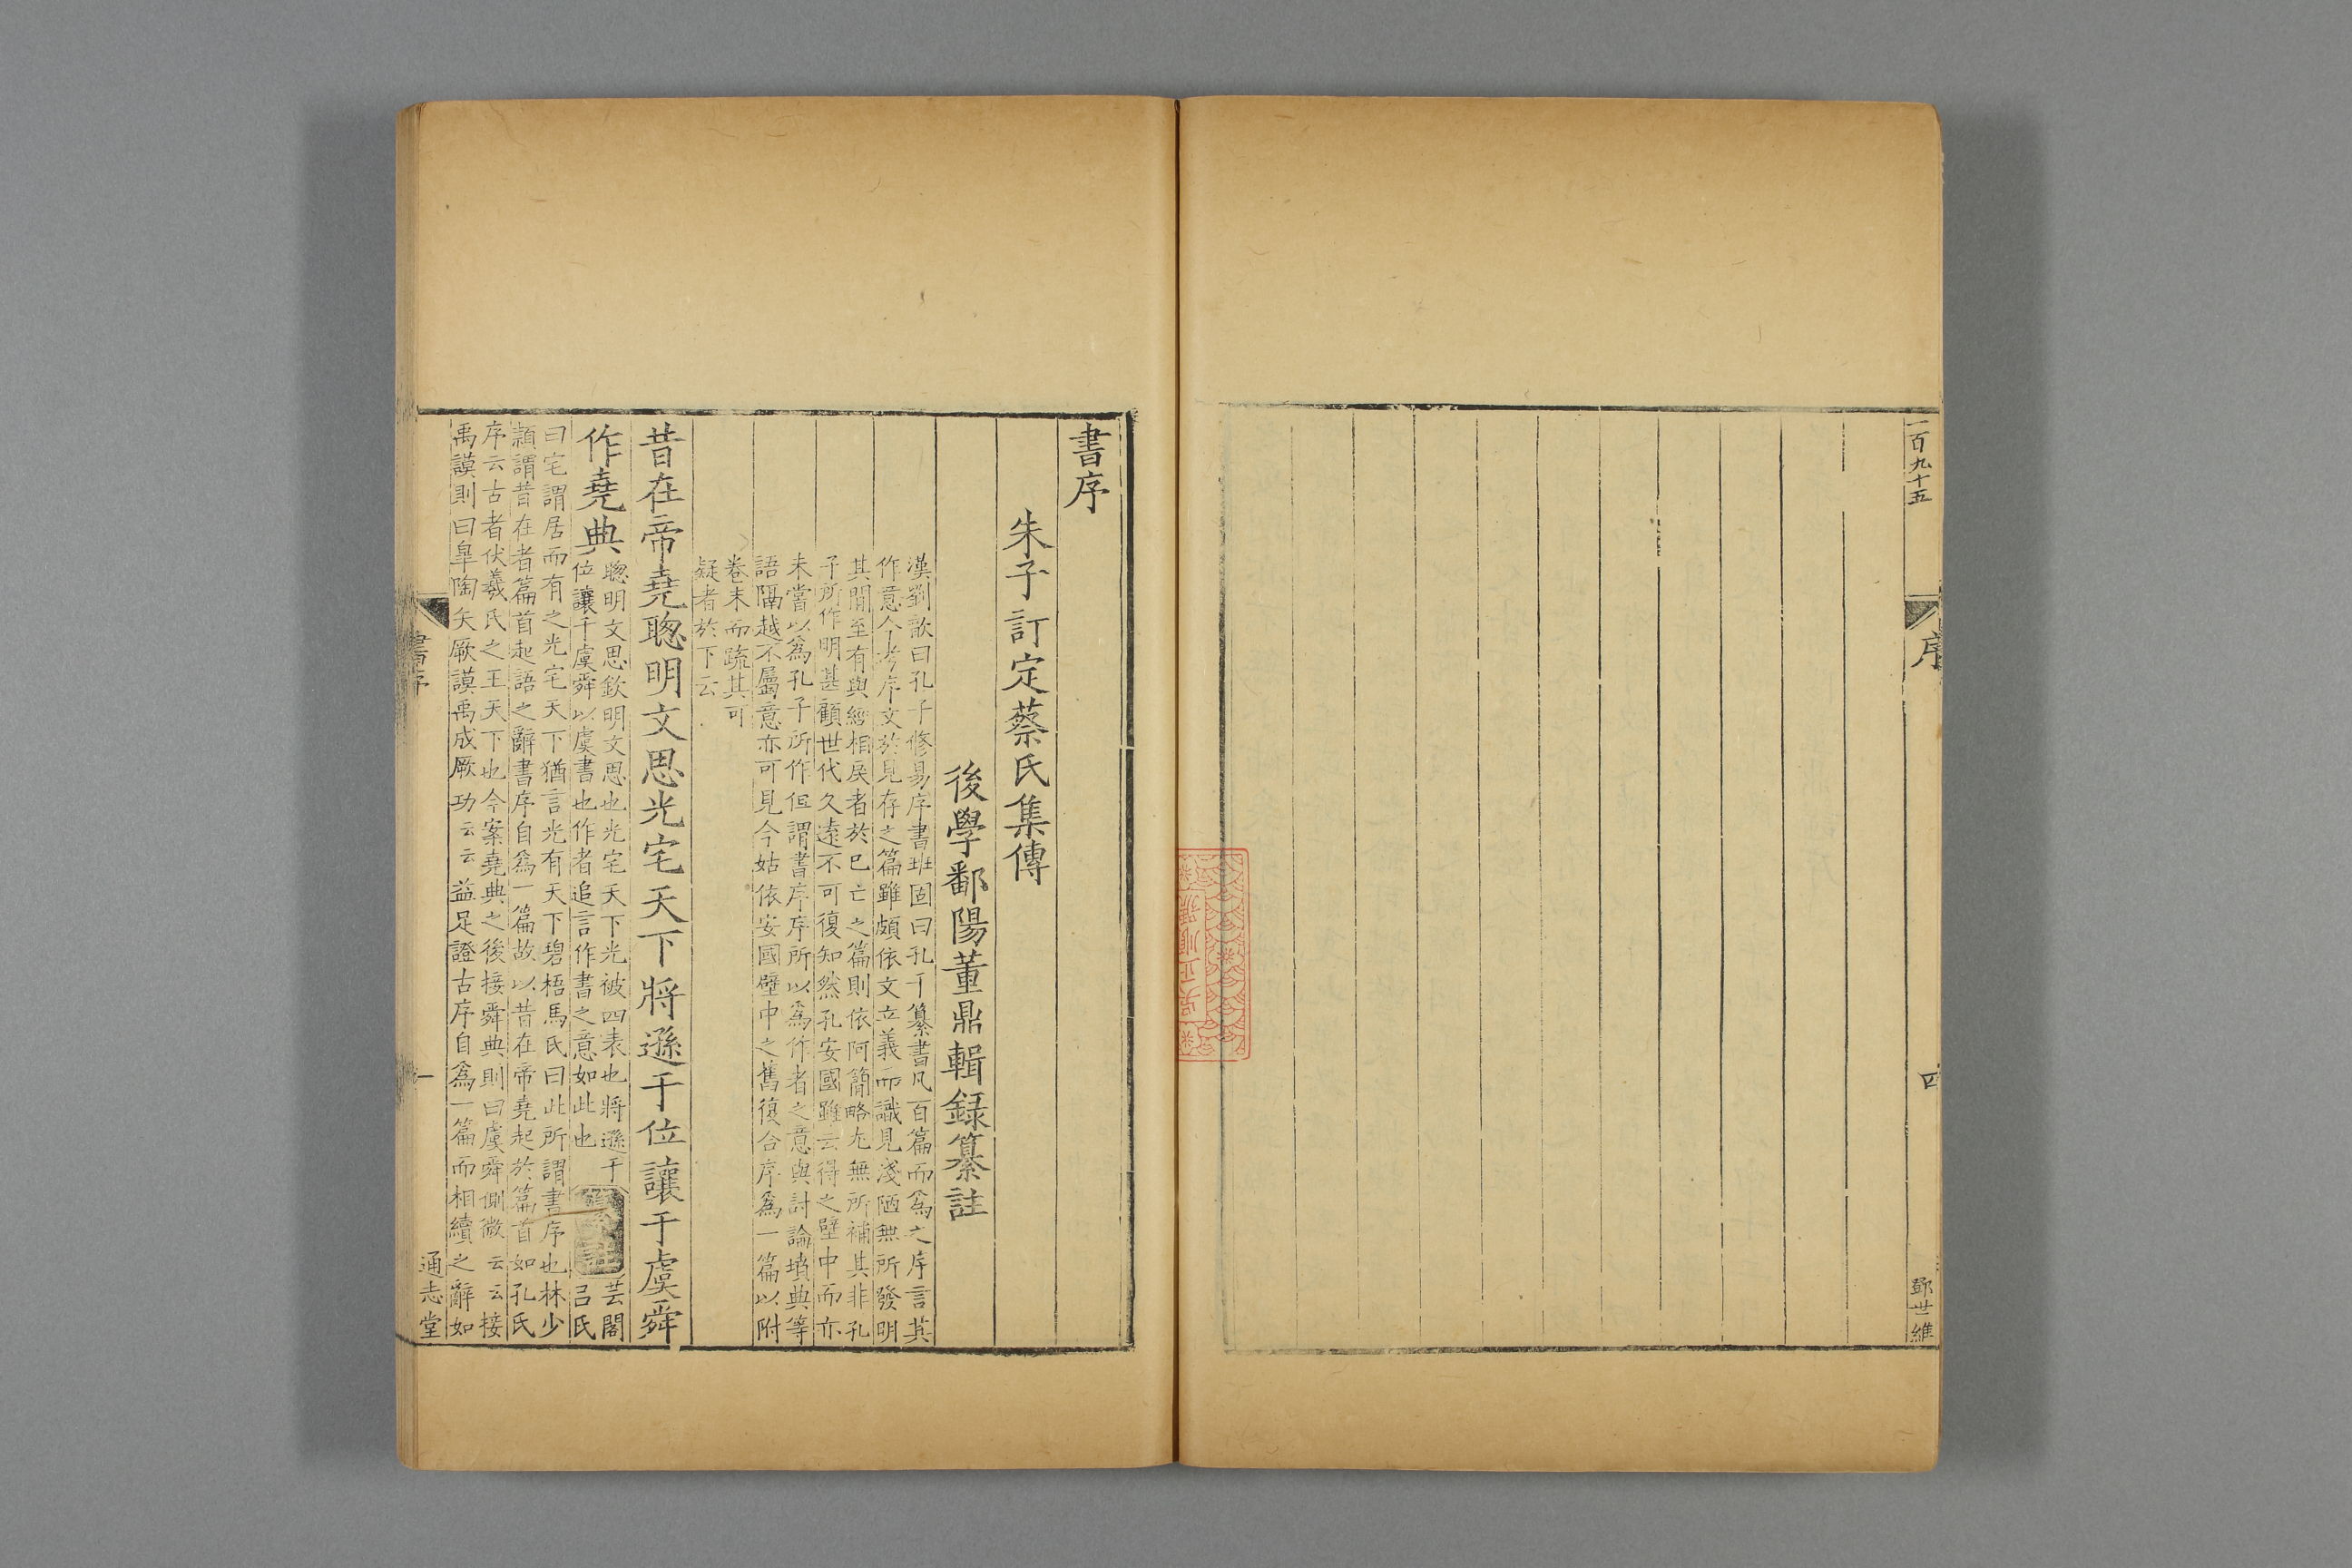 一百九十五
序
四
鄧世維
書序
朱子訂定蔡氏集傳
後學鄱陽董鼎輯録纂註
漢劉歆曰孔子修易序書班固曰孔子纂書凡百篇而爲之序言其
作意今考序文於見存之篇雖頗依文立義而識見淺陋無所發明
其間至有與經相戾者於已亡之篇則依阿簡略尢無所補其非孔
子所作明甚顧世代久遠不可復知然孔安國雖云得之壁中而亦
未嘗以爲孔子所作但謂書序序所以爲作者之意與討論墳典等
語隔越不屬意亦可見今姑依安國壁中之舊復合序爲一篇以附
卷末而疏其可
疑者於下云
昔在帝堯聦明文思光宅天下將遜于位讓于虞舜
作堯典
聦明文思欽明文思也光宅天下光被四表也將遜于
位讓于虞舜以虞書也作者追言作書之意如此也
纂註
芸閣
吕氏
曰宅謂居而有之光宅天下猶言光有天下碧梧馬氏曰此所謂書序也林少
頴謂昔在者篇首起語之辭書序自爲一篇故以昔在帝堯起於篇首如孔氏
序云古者伏羲氏之王天下也今案堯典之後接舜典則曰虞舜側微云云接
禹謨則曰臯陶矢厥謨禹成厥功云云益足證古序自爲一篇而相續之辭如
書序
一
通志堂